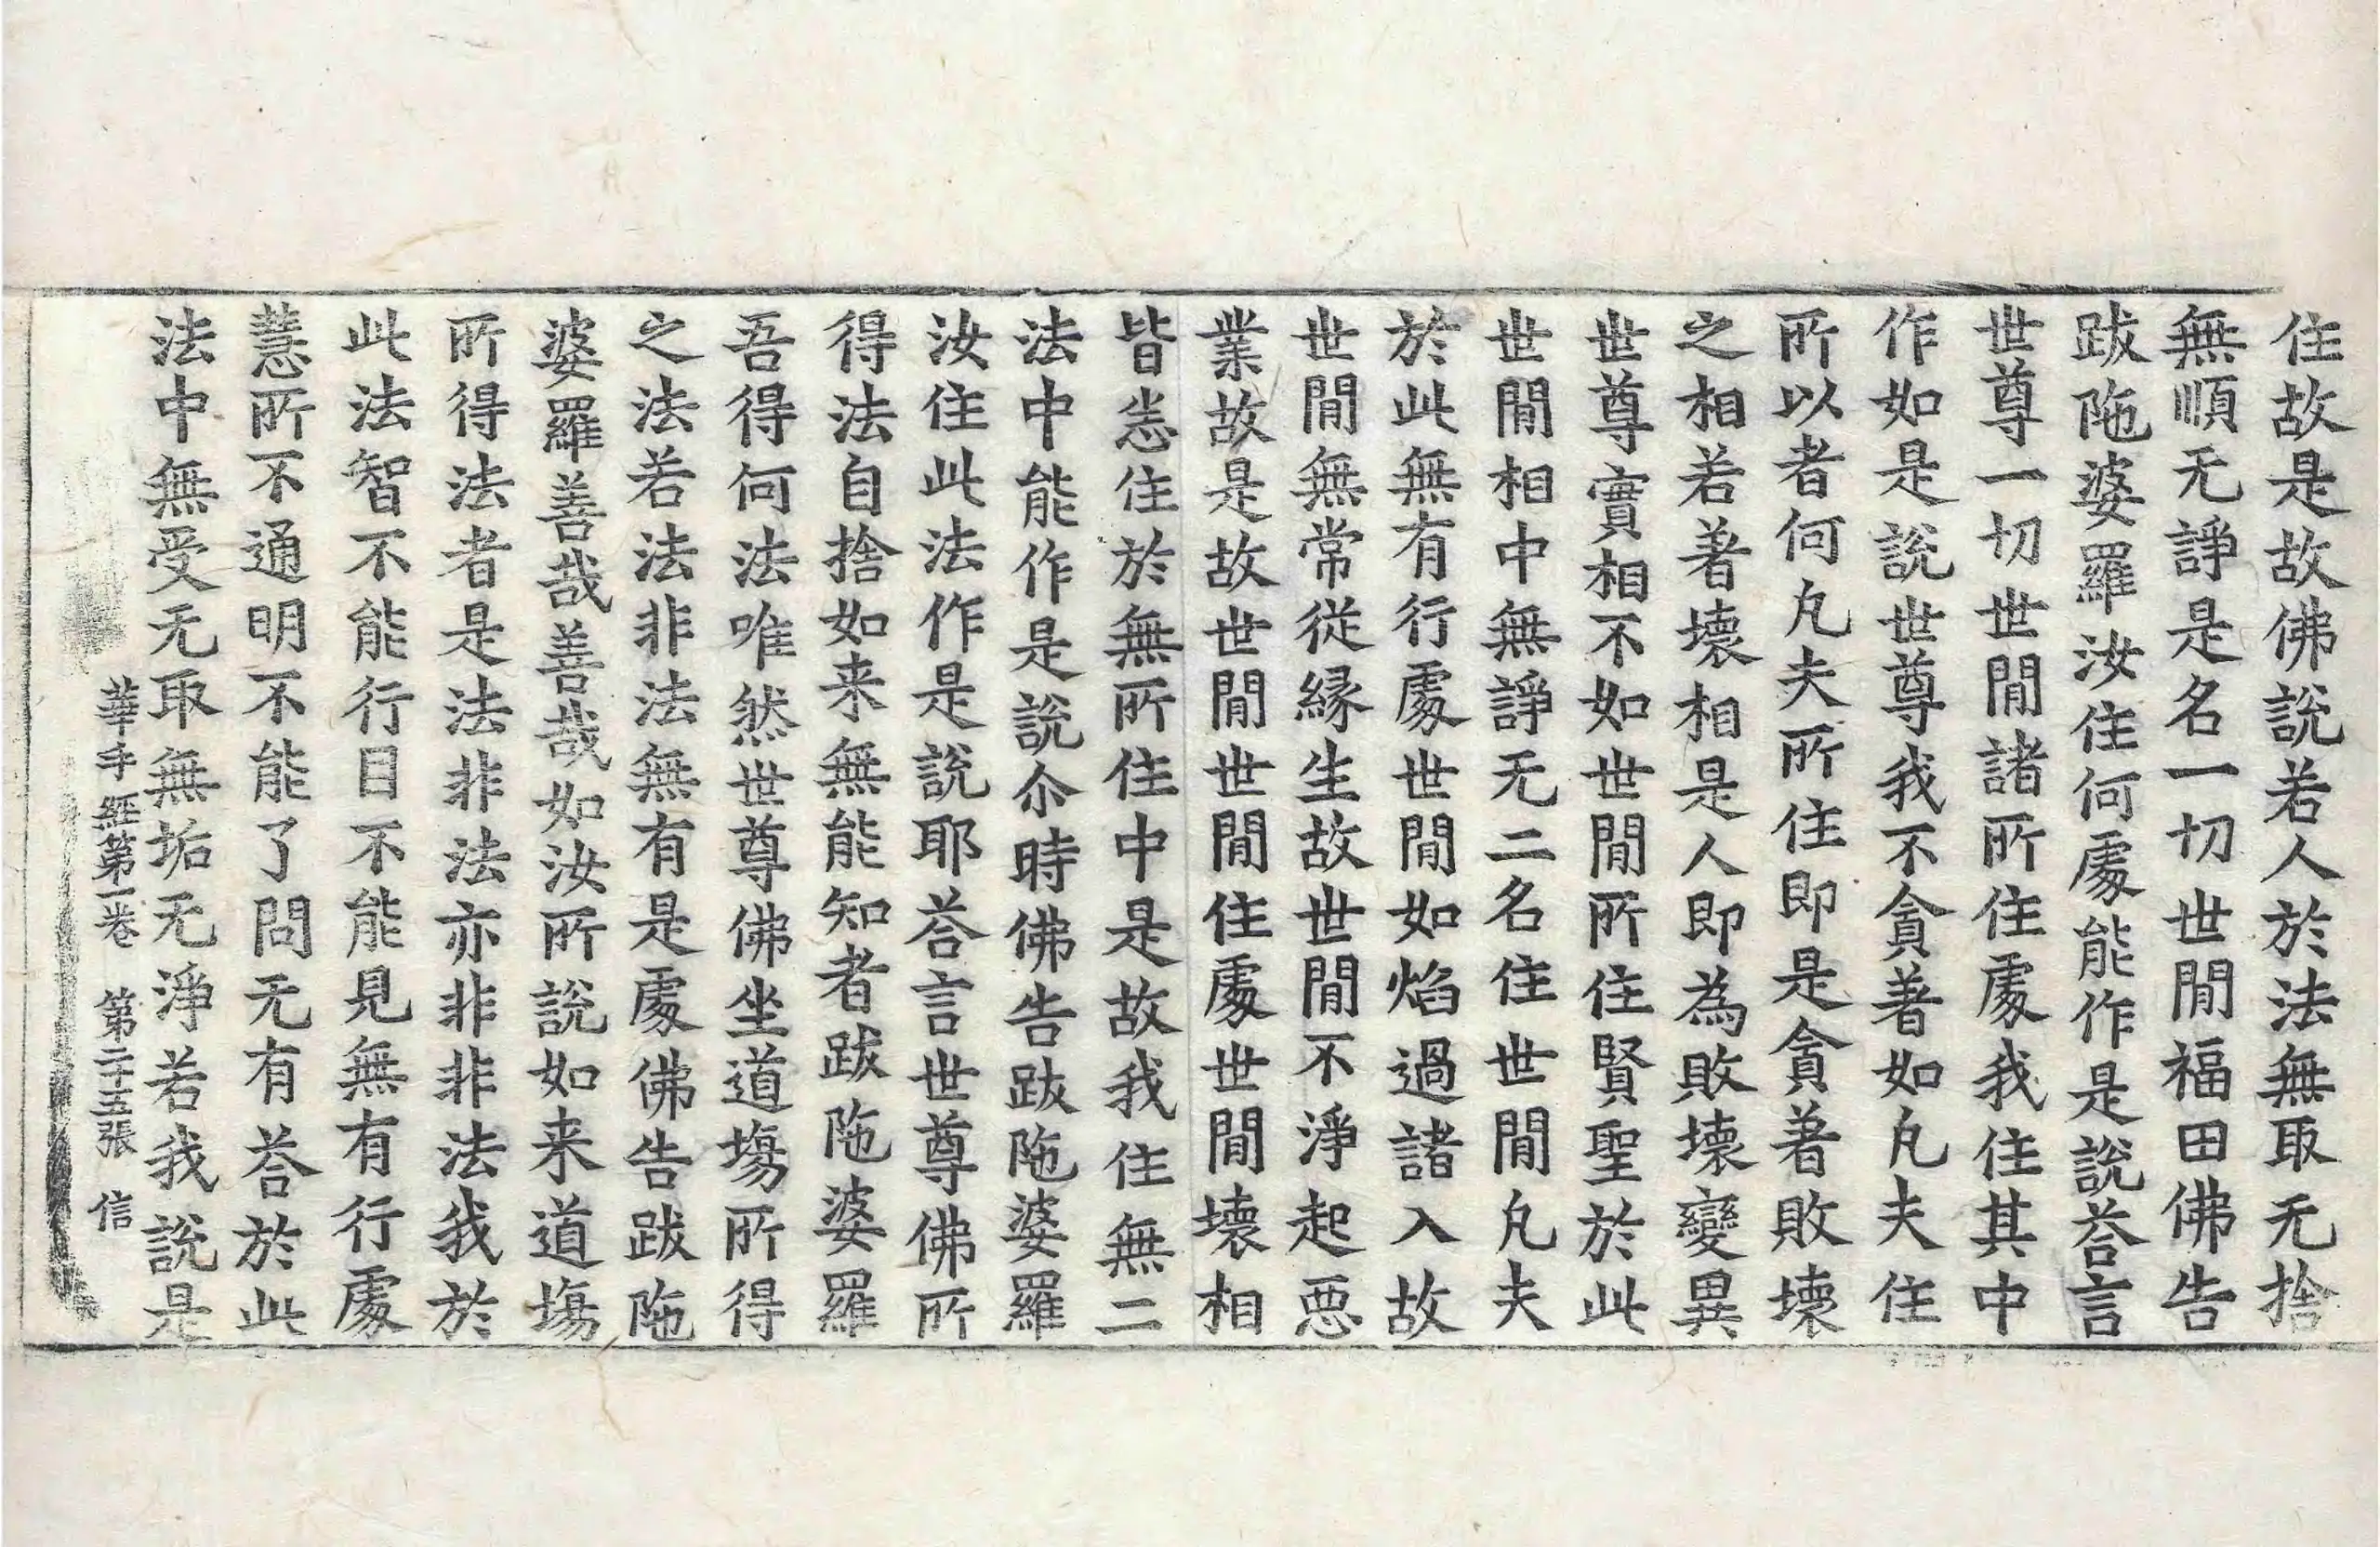 住故是故佛說若人於法無取无捨
無順无諍是名一切世閒福田佛告
跋陁婆羅汝住何處能作是說荅言
世尊一切世閒諸所住處我住其中
作如是說世尊我不貪著如凡夫住
所以者何凡夫所住即是貪著敗壞
之相若著壞相是人即為敗壞變異
世尊實相不如世閒所住賢聖於此
世閒相中無諍无二名住世閒凡夫
於此無有行處世閒如焰過諸入故
世閒無常從縁生故世閒不淨起惡
業故是故世閒世閒住處世閒壞相
皆悉住於無所住中是故我住無二
法中能作是說尒時佛告跋陁婆羅
汝住此法作是說耶荅言世尊佛所
得法自捨如来無能知者跋陁婆羅
吾得何法唯然世尊佛坐道塲所得
之法若法非法無有是處佛告跋陁
婆羅善哉善哉如汝所說如来道塲
所得法者是法非法亦非非法我於
此法智不能行目不能見無有行處
慧所不通明不能了問无有荅於此
法中無受无取無垢无淨若我說是
華手經第一卷 第二十五張 信